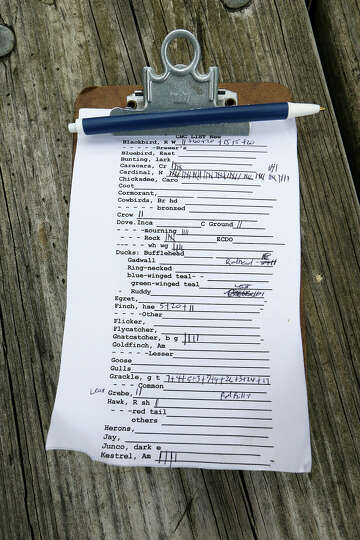 CBC LIST New
Blackbird, R W
- - - - -Brewer's
Bluebird, East
Bunting, lark
Caracara, Cr
Cardinal, N
Chickadee, Caro
Coot
Cormorant,
Cowbirds, Br hd
- - - - bronzed
Crow ||
Dove.Inca C Ground ||
- - - -mourning
- - - - Rock ECDO
- - - wh wg
Ducks: Bufflehead
Gadwall
Ring-necked
blue-winged teal- -
green-winged teal
- Ruddy
Egret,
Finch, hse 5+20+||
- - - - -Other
Flicker,
Flycatcher,
Gnatcatcher, b g
Goldfinch, Am
- - - - - -Lesser
Goose
Gulls
Grackle, g t
- - - - -Common
Least Grebe, || Pd Billd
Hawk, R sh ||
- - -red tail
others
Herons,
Jay,
Junco, dark e
Kestrel, Am ||||